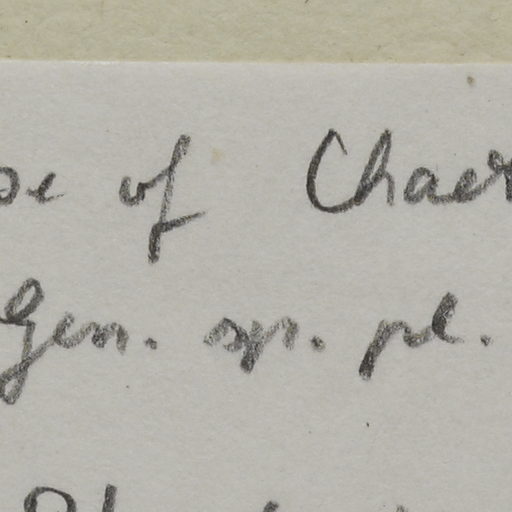 of Chaer
Gen. sp. pl.